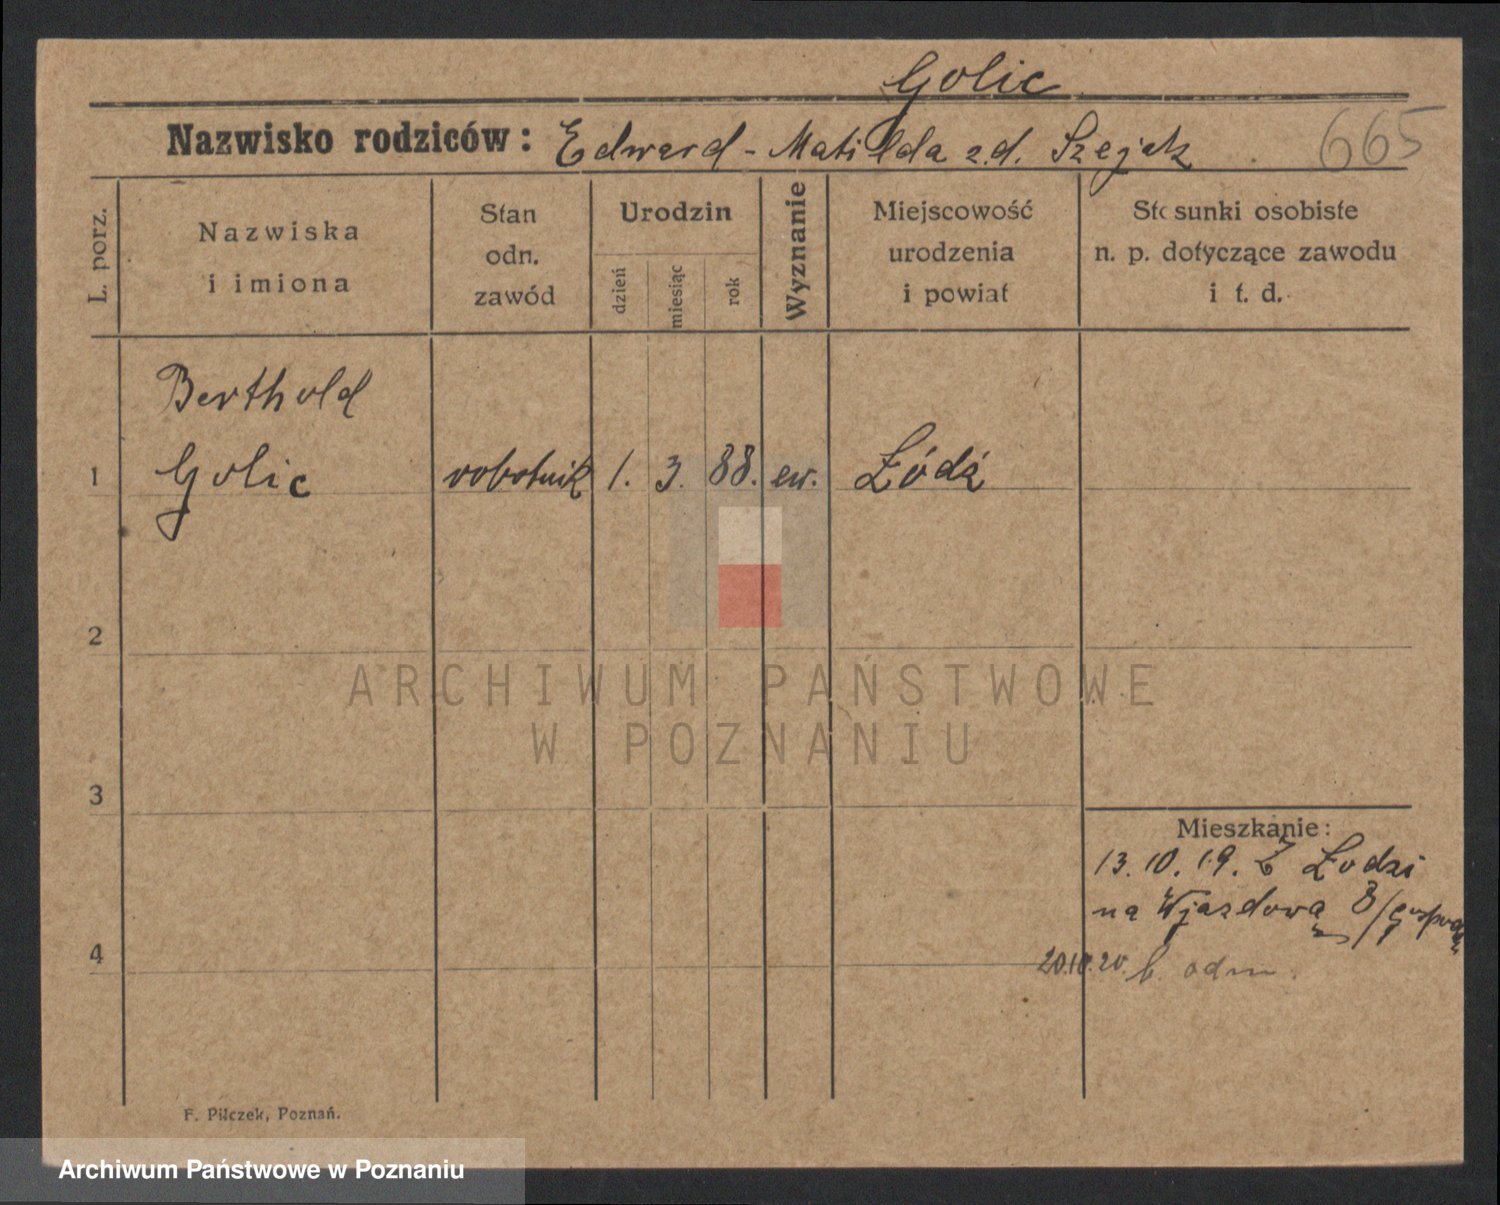 Golic
Nazwisko rodziców: Edward - Matilda z.d. Szejek 665
L. porz.
Nazwiska
i imiona
Stan
odn.
zawód
Urodzin
dzień
miesiąc
rok
Wyznanie
Miejscowość
urodzenia
i powiat
Stosunki osobiste
n. p. dotyczące zawodu
i t. d.
Berthold
1 Golic robotnik 1. 3. 88. ew. Łódź
2
ARCHIWUM PAŃSTWOWE
W POZNANIU
3
Mieszkanie:
13.10.19. Z Łodzi
na Wjazdową 8/
4
20.10.20. b. odm.
F. Pilczek, Poznań.
Archiwum Państwowe w Poznaniu